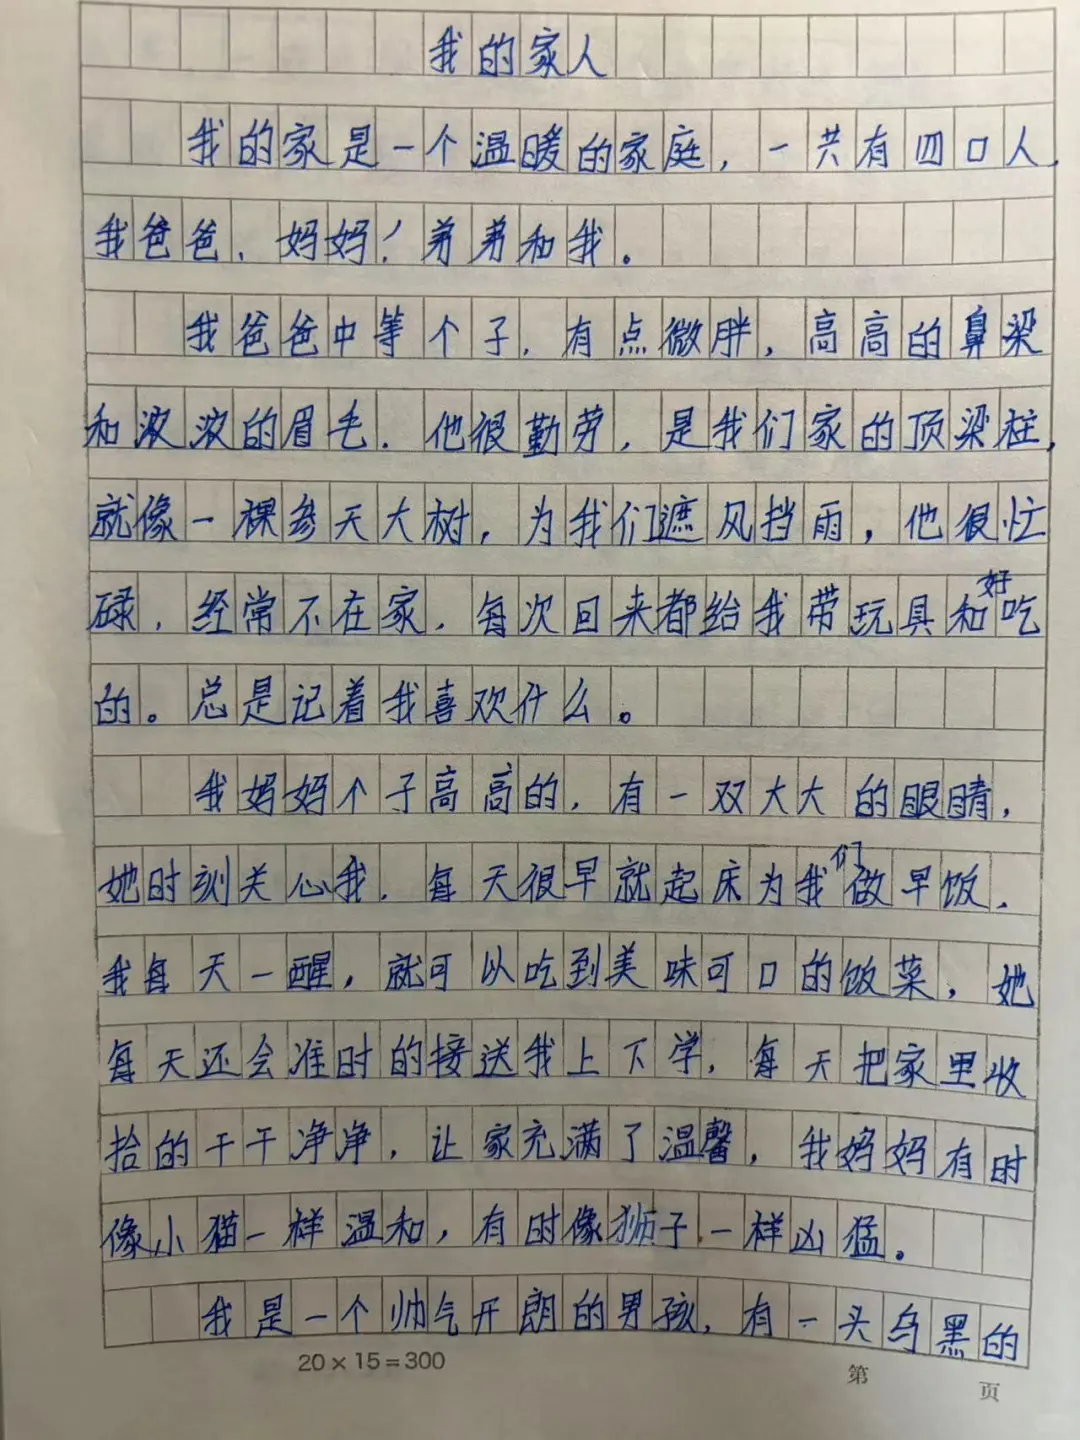 我的家人
我的家是一个温暖的家庭，一共有四口人，
我爸爸、妈妈、弟弟和我。
我爸爸中等个子，有点微胖，高高的鼻梁
和浓浓的眉毛。他很勤劳，是我们家的顶梁柱，
就像一棵参天大树，为我们遮风挡雨，他很忙
碌，经常不在家，每次回来都给我带玩具和好吃
的。总是记着我喜欢什么。
我妈妈个子高高的，有一双大大的眼睛，
她时刻关心我，每天很早就起床为我们做早饭，
我每天一醒，就可以吃到美味可口的饭菜，她
每天还会准时的接送我上下学，每天把家里收
拾的干干净净，让家充满了温馨，我妈妈有时
像小猫一样温和，有时像狮子一样凶猛。
我是一个帅气开朗的男孩，有一头乌黑的
20×15=300
第 页